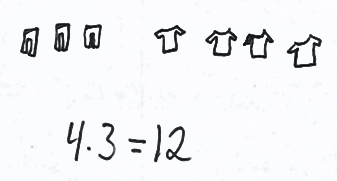 4·3=12